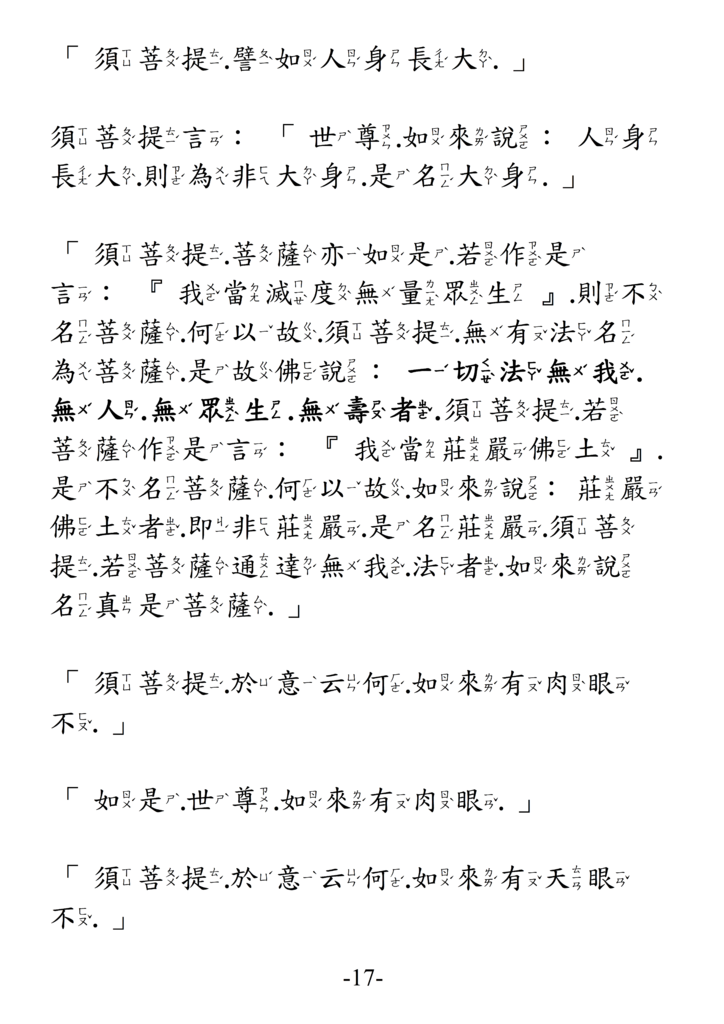 「 須菩提.譬如人身長大. 」
須菩提言： 「 世尊.如來說： 人身
長大.則為非大身.是名大身. 」
「 須菩提.菩薩亦如是.若作是
言： 『 我當滅度無量眾生 』.則不
名菩薩.何以故.須菩提.無有法名
為菩薩.是故佛說： 一切法無我.
無人.無眾生.無壽者.須菩提.若
菩薩作是言： 『 我當莊嚴佛土 』.
是不名菩薩.何以故.如來說： 莊嚴
佛土者.即非莊嚴.是名莊嚴.須菩
提.若菩薩通達無我.法者.如來說
名真是菩薩. 」
「 須菩提.於意云何.如來有肉眼
不. 」
「 如是.世尊.如來有肉眼. 」
「 須菩提.於意云何.如來有天眼
不. 」
-17-